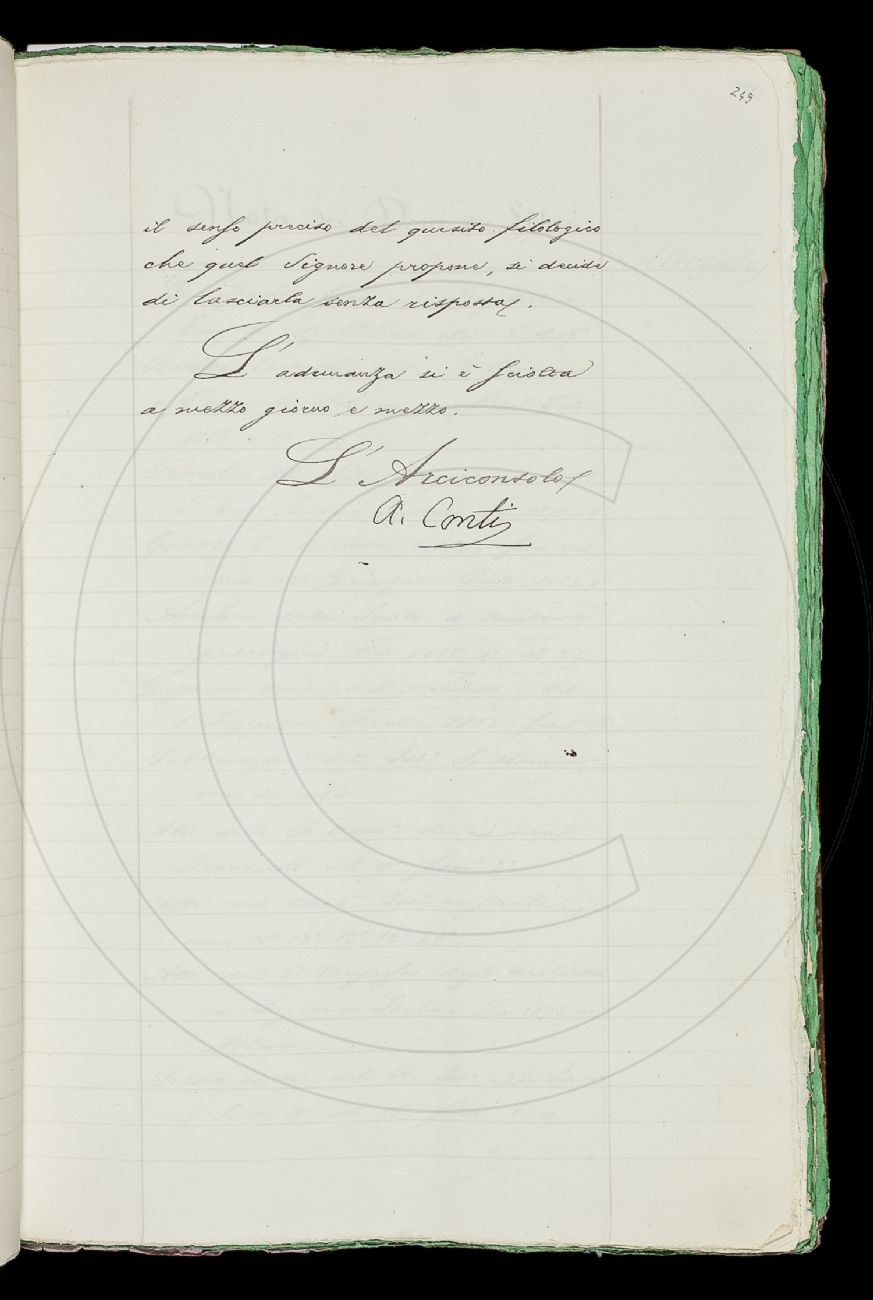 249
il senso preciso del quesito filologico
che quel Signore propone, si decide
di lasciarla senza risposta.
L'adunanza si è sciolta
a mezzo giorno e mezzo.
L'Arciconsolo
A. Conti